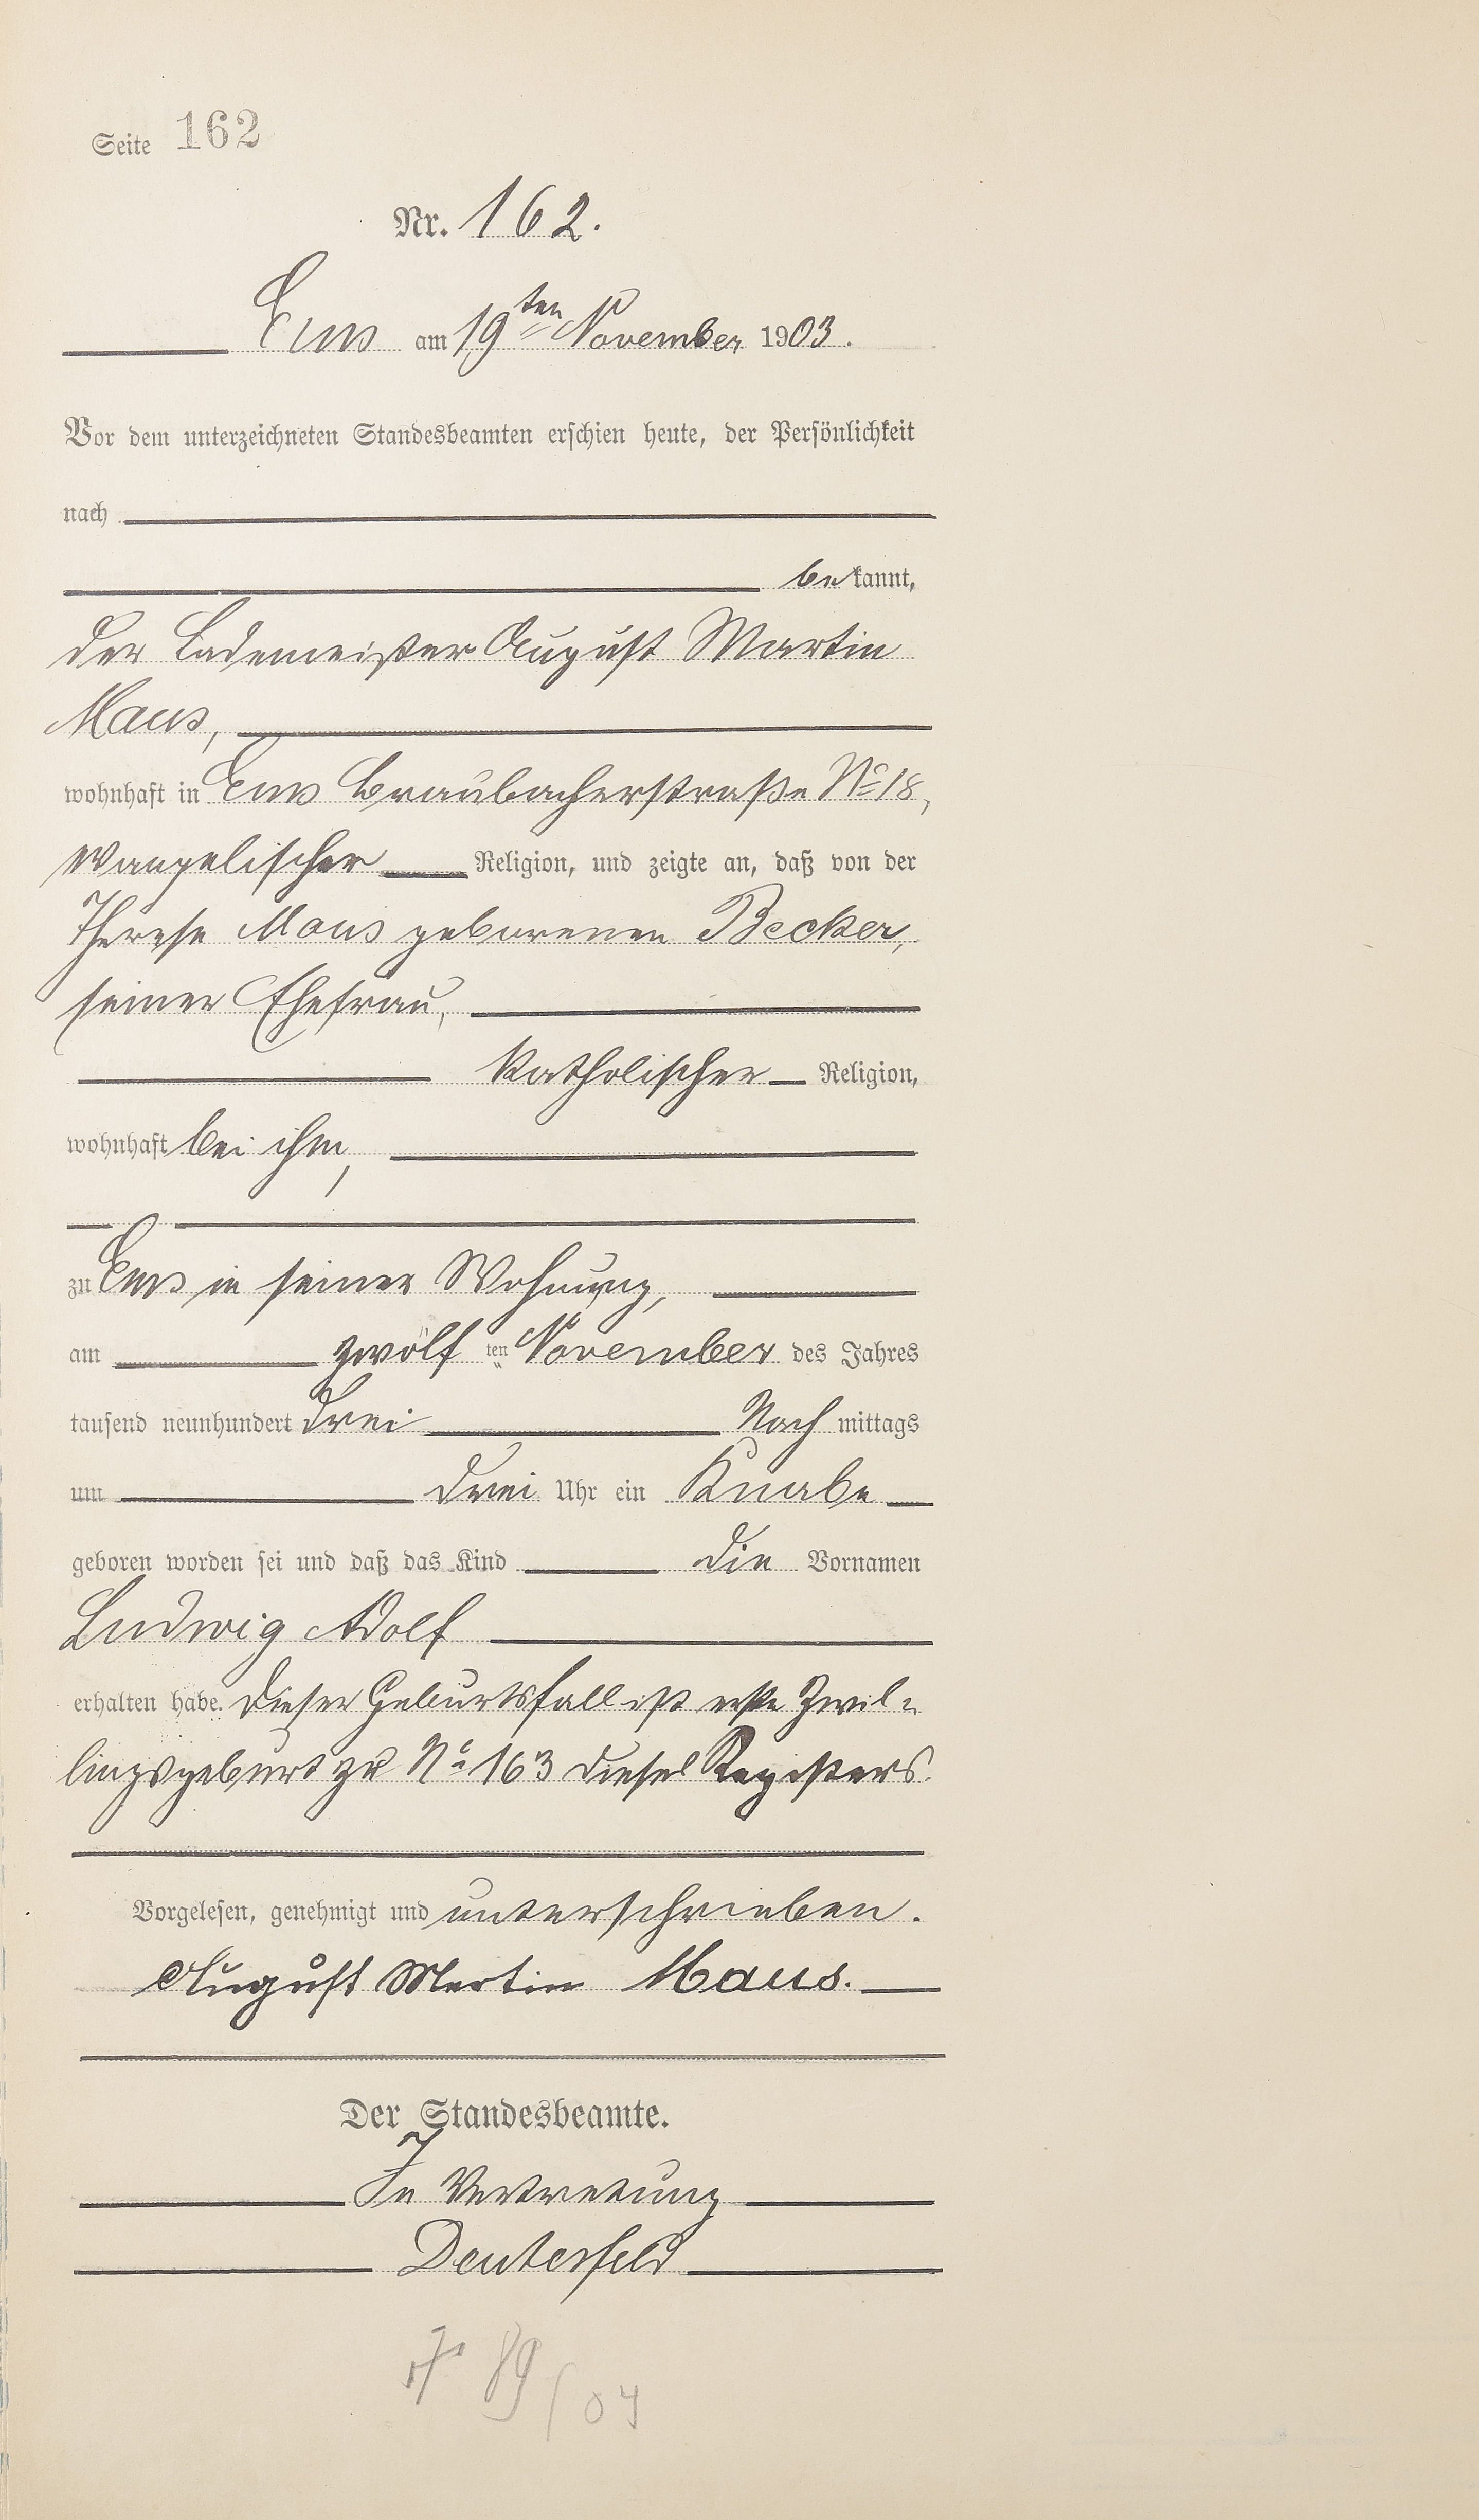 Seite 162
Nr. 162.
Ems am 19ten November 1903.
Vor dem unterzeichneten Standesbeamten erschien heute, der Persönlichkeit
nach
bekannt,
der Lademeister August Martin
Maus,
wohnhaft in Ems Braubacherstraße No 18,
evangelischer Religion, und zeigte an, daß von der
Therese Maus geborenen Becker,
seiner Ehefrau,
katholischer Religion,
wohnhaft bei ihm,
zu Ems in seiner Wohnung,
am zwölften November des Jahres
tausend neunhundert drei Nachmittags
um drei Uhr ein Knabe
geboren worden sei und daß das Kind die Vornamen
Ludwig Adolf
erhalten habe. Dieser Geburtsfall ist erste Zwil-
lingsgeburt zu No 163 dieses Registers.
Vorgelesen, genehmigt und unterschrieben.
August Martin Maus.
Der Standesbeamte.
In Vertretung
Deuterfeld
89/04